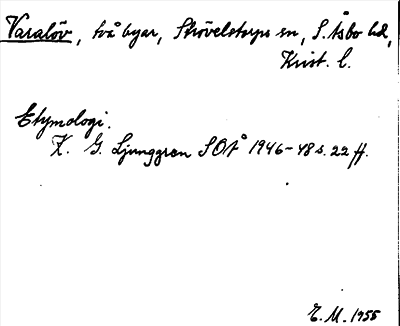 Varalöv, två byar, Strövelstorps sn, S. Åsbo hd,
Krist. l.
Etymologi.
K. G. Ljunggren SOÅ 1946-48 s. 22 ff.
E. M. 1955